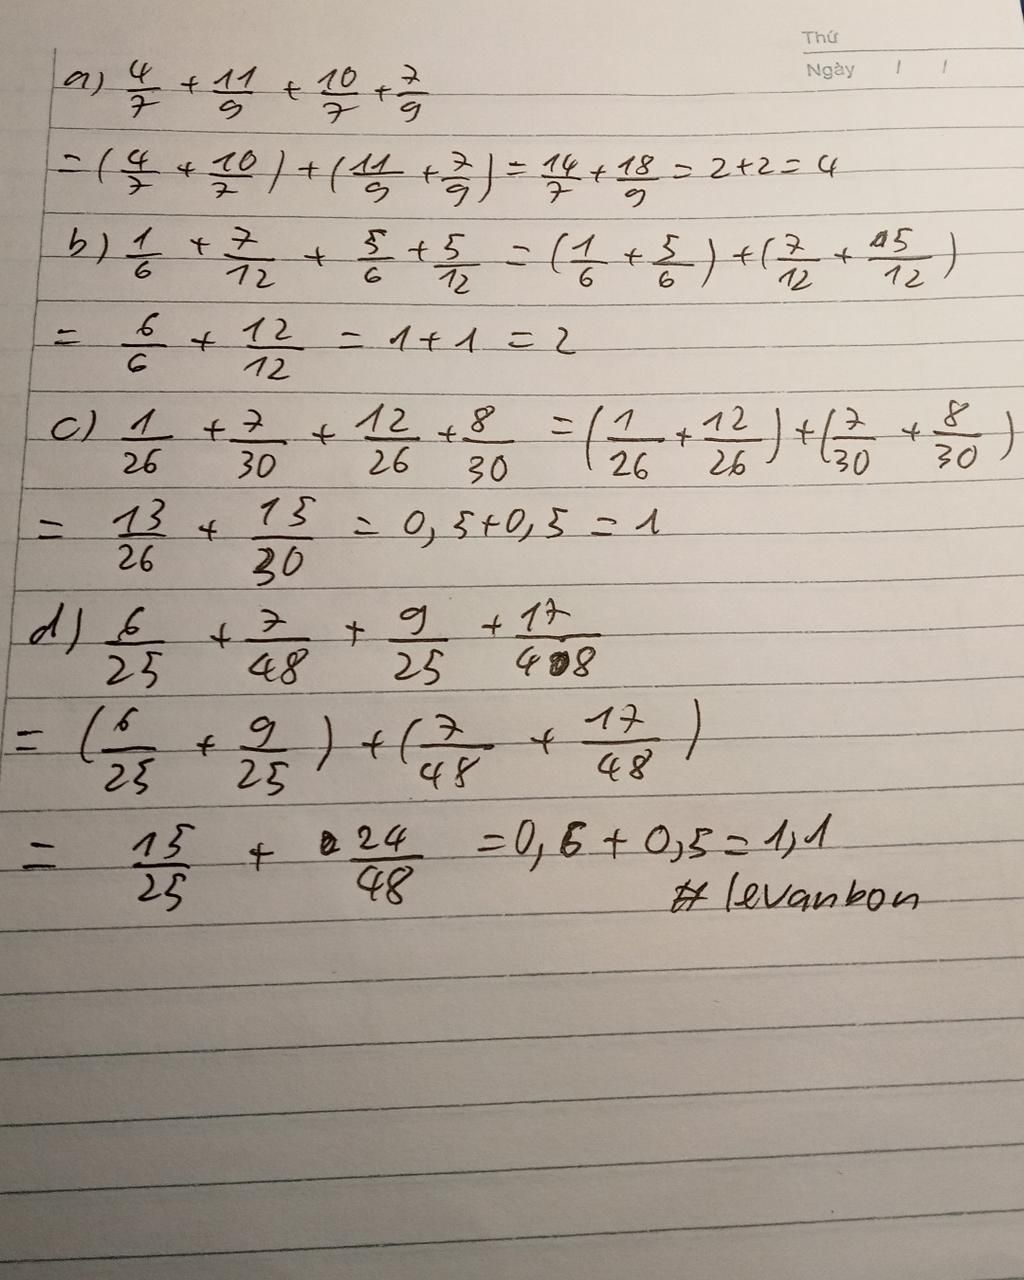 Thứ
Ngày / /
a) 4/7 + 11/9 + 10/7 + 7/9
= (4/7 + 10/7) + (11/9 + 7/9) = 14/7 + 18/9 = 2+2 = 4
b) 1/6 + 7/12 + 5/6 + 5/12 = (1/6 + 5/6) + (7/12 + 5/12)
= 6/6 + 12/12 = 1+1 = 2
c) 1/26 + 7/30 + 12/26 + 8/30 = (1/26 + 12/26) + (7/30 + 8/30)
= 13/26 + 15/30 = 0,5+0,5 = 1
d) 6/25 + 7/48 + 9/25 + 17/48
= (6/25 + 9/25) + (7/48 + 17/48)
= 15/25 + 24/48 = 0,6 + 0,5 = 1,1
# levanbon